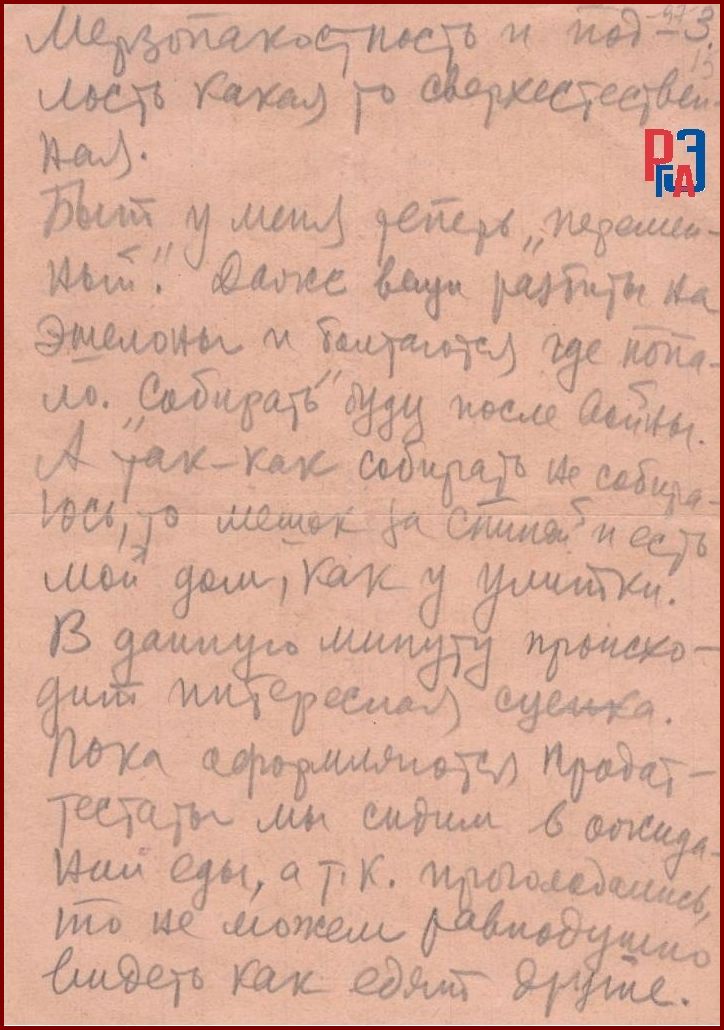 Мерзопакостность и под-
лость какая то сверхестествен-
ная.
Быт у меня теперь „перемен-
ный". Даже вещи разбиты на
эшелоны и болтаются где попа-
ло. „Собирать" буду после войны.
А так-как собирать не собира-
юсь, то мешок за спиной и есть
мой дом, как у улитки.
В данную минуту происхо-
дит интересная сценка.
Пока оформляются продат-
тестаты мы сидим в ожида-
нии еды, а т.к. проголодались,
то не можем равнодушно
видеть как едят другие.
3.
РГАЭ